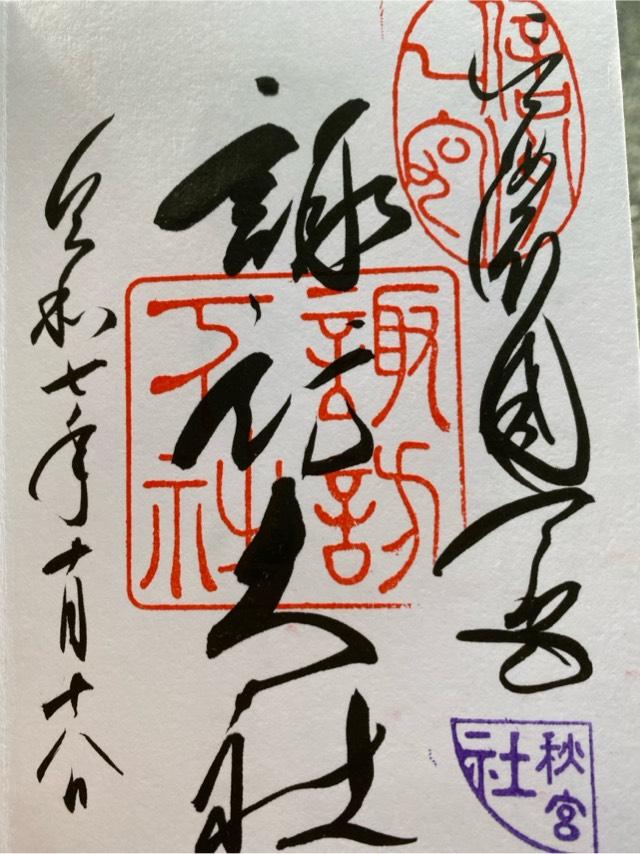 信濃國一宮
諏訪大社
諏訪
下社
令和七年十月十八日
秋宮
社